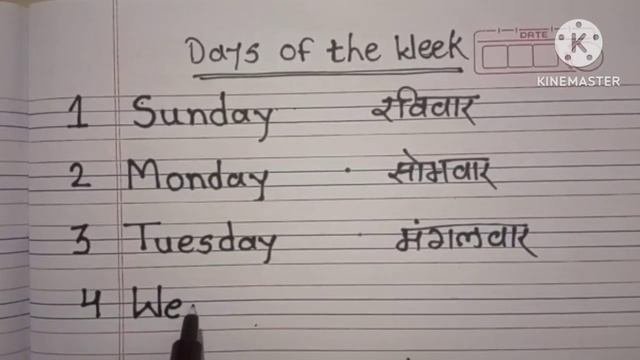 Days of the Week
DATE
KINEMASTER
1 Sunday रविवार
2 Monday सोमवार
3 Tuesday मंगलवार
4 We